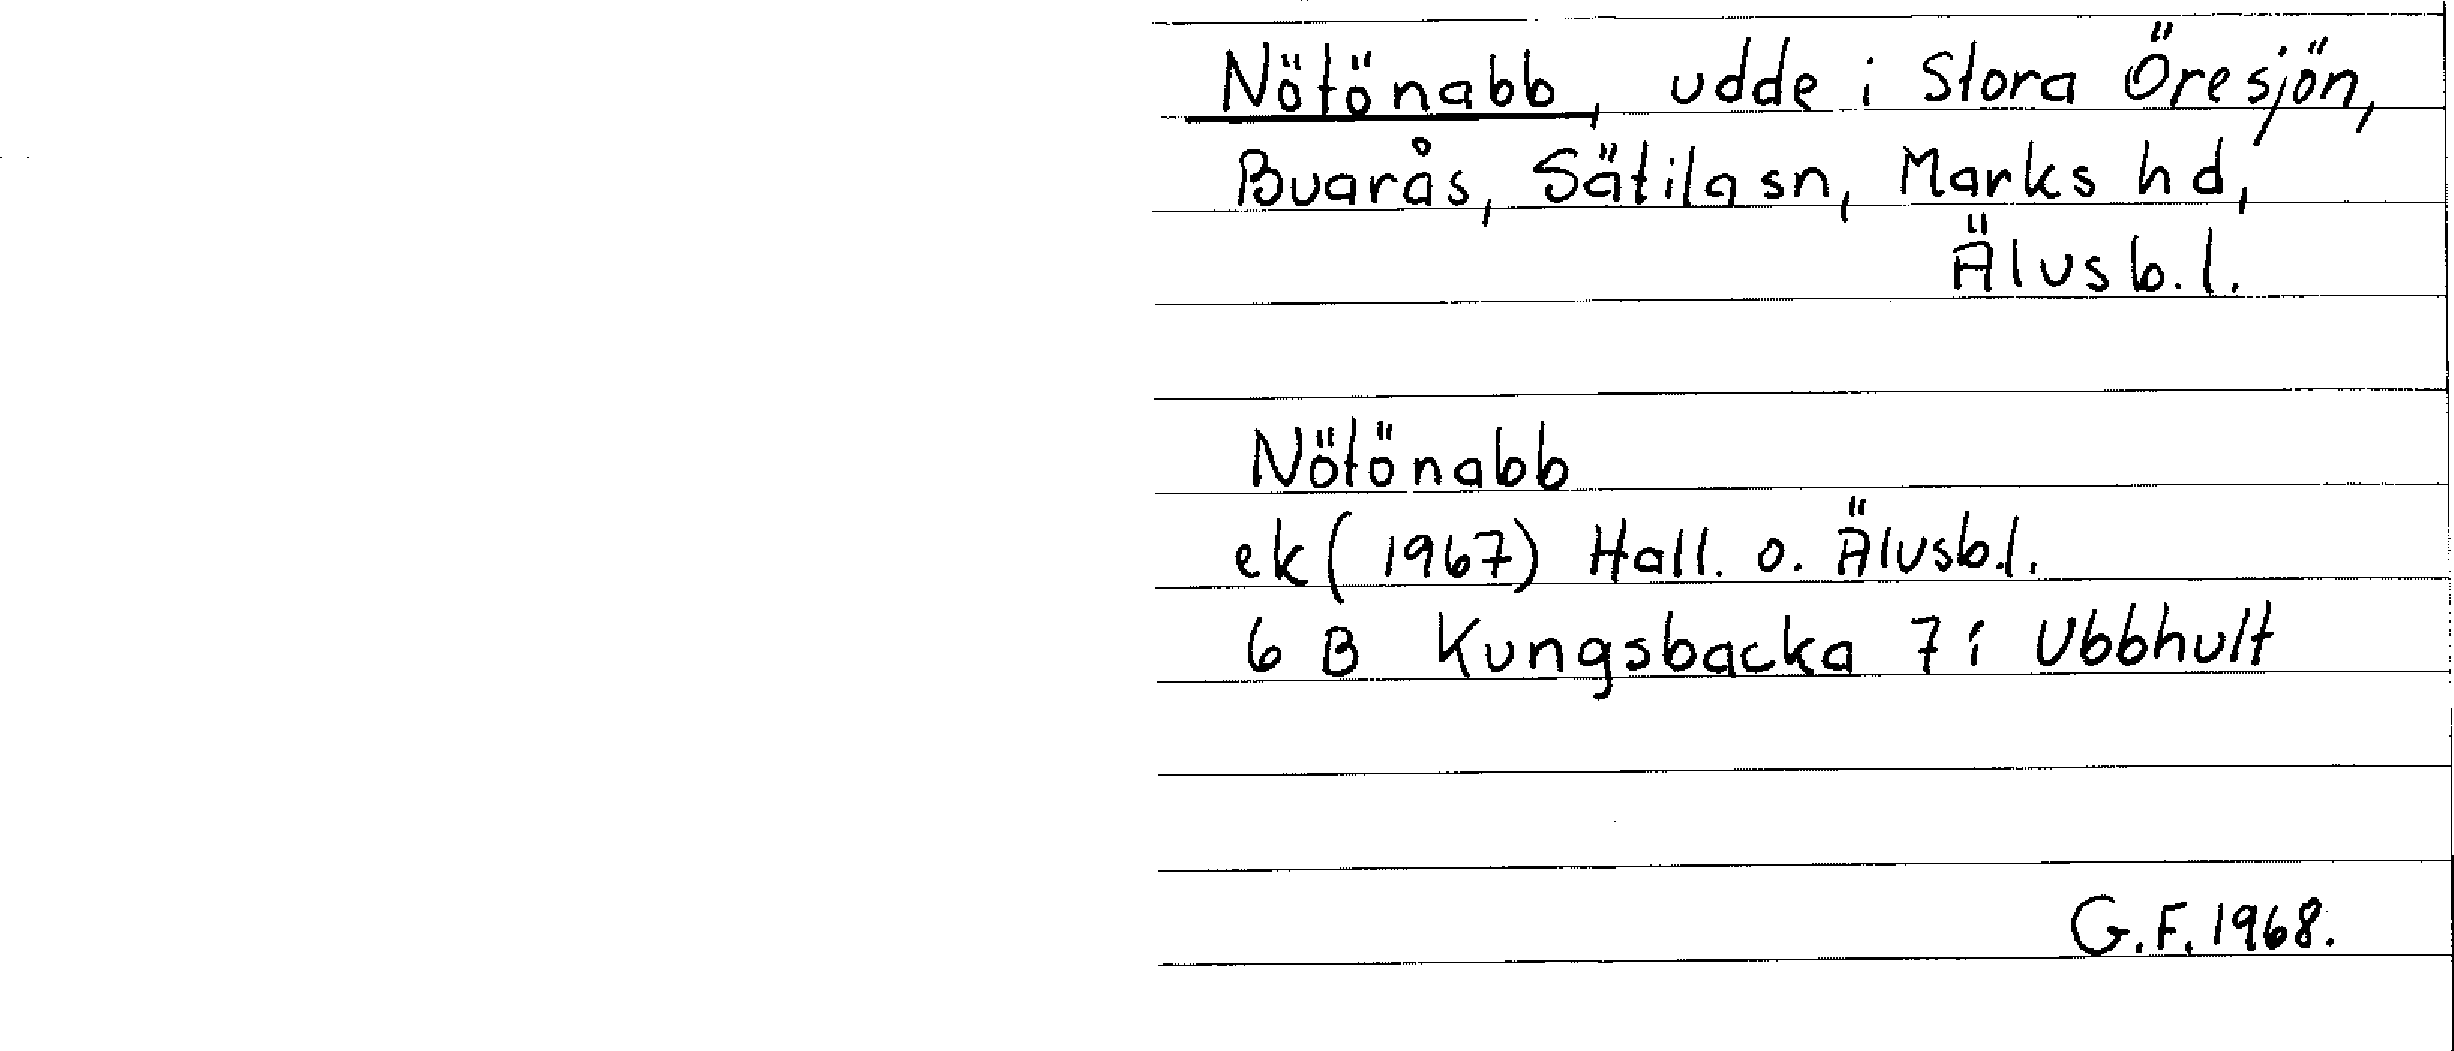 Nötönabb, udde i Stora Öresjön,
Buarås, Sätila sn, Marks hd,
Älvsb.l.
Nötönabb
ek (1967) Hall. o. Älvsb.l.
6 B Kungsbacka 7 i Ubbhult
G.F. 1968.